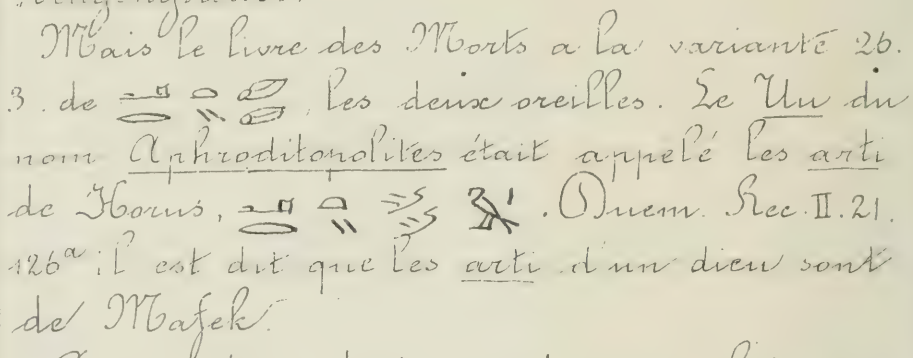 Mais le livre des Morts a la variante 26.
3. de 𓂝𓏏𓂋𓏭 , les deux oreilles. Le Uu du
nom Aphroditopolites était appelé les arti
de Horus, 𓂝𓏏𓂋𓏭 . Duem. Rec. II. 21.
126ᵃ il est dit que les arti d'un dieu sont
de Mafek.